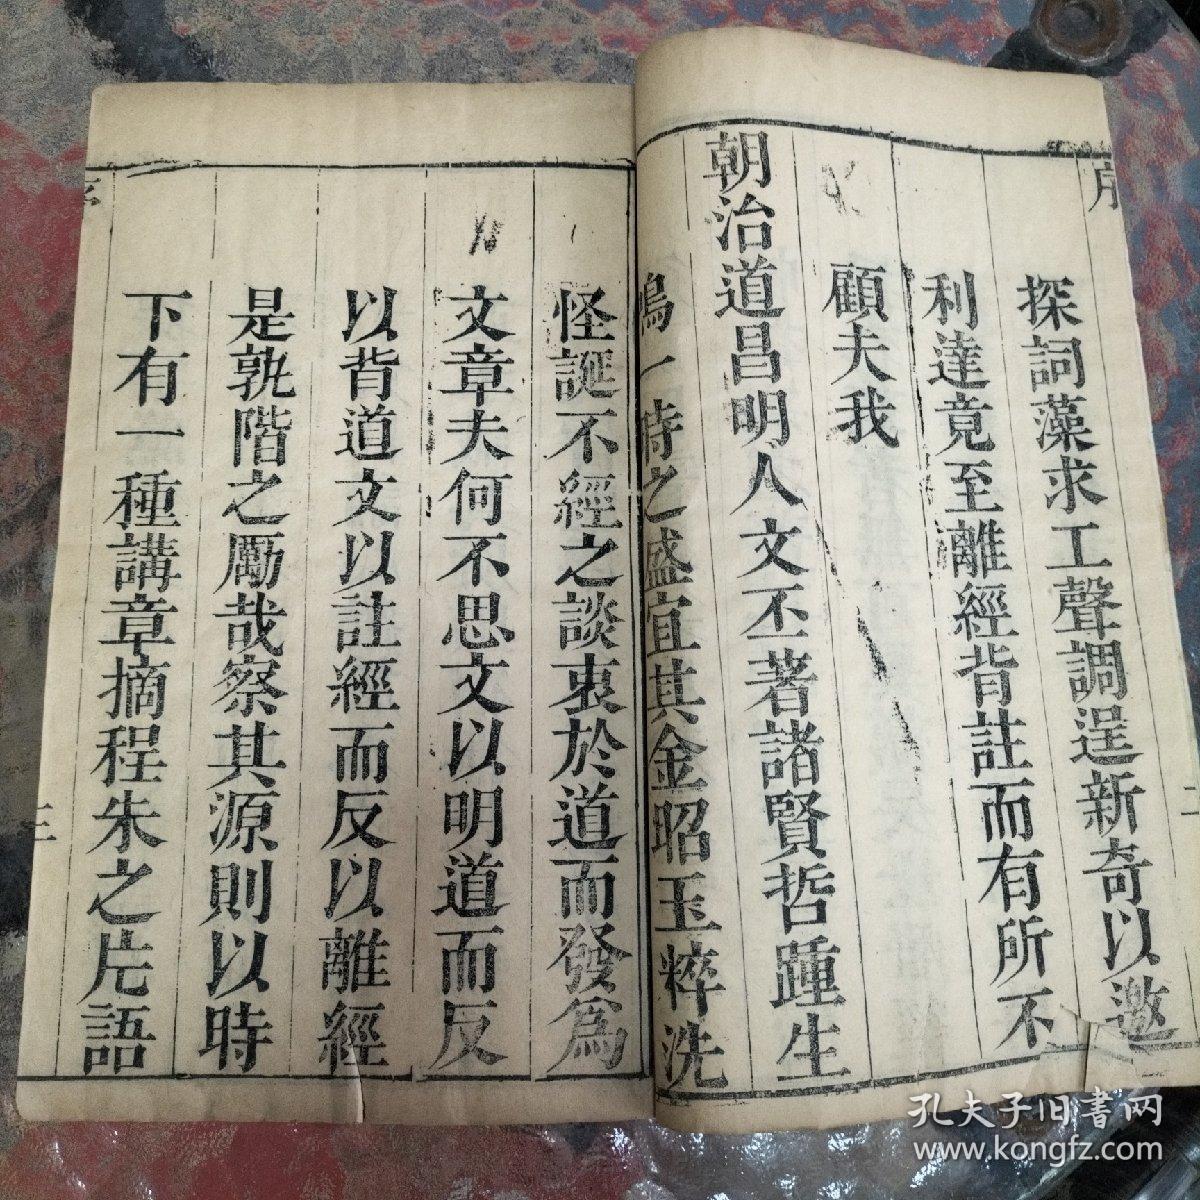 序
探詞藻求工聲調逞新奇以邀
利達竟至離經背註而有所不
顧夫我
朝治道昌明人文丕著諸賢哲踵生
鳴一時之盛宜其金昭玉粹洗
二
怪誕不經之談衷於道而發爲
文章夫何不思文以明道而反
以背道文以註經而反以離經
是孰階之厲哉察其源則以時
下有一種講章摘程朱之片語
三
孔夫子旧書网
www.kongfz.com